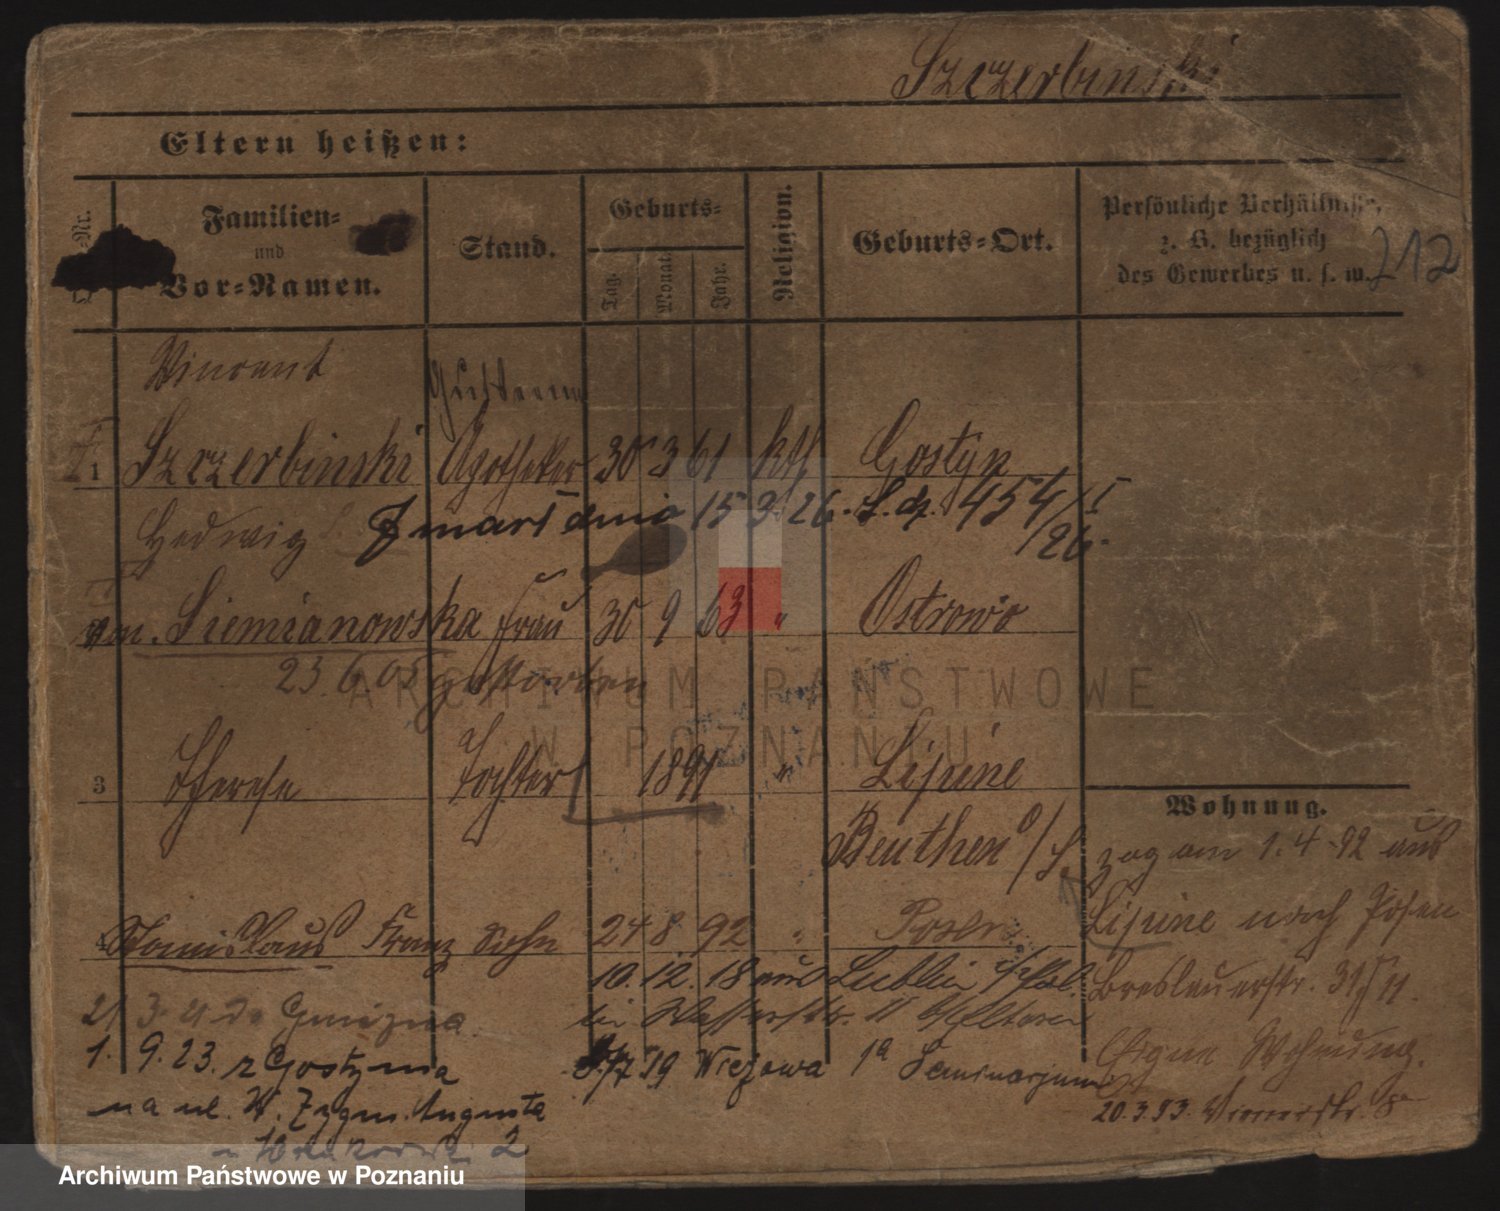 Szczerbinski
Eltern heißen:
Familien=
und
Vor=Namen.
Stand.
Geburts=
Tag.
Monat.
Jahr.
Religion.
Geburts=Ort.
Persönliche Verhältnisse,
z. B. bezüglich
des Gewerbes u. s. w.
212
Vincent
1 Szczerbinski Apotheker 30 3 61 kth Gostyn
Hedwig
zmarł dnia 15 3 26. L. dz. 454/I
/26.
Siemianowska Frau 30 9 63 " Ostrowo
23.6.05 gestorben
3 Therese Tochter 1891 " Lipine
Beuthen O/S.
Wohnung.
zog am 1.4.92 aus
Lipine nach Posen
4 Stanislaus Franz Sohn 24 8 92 " Posen
Breslauerstr. 31 II.
10.12.18 aus Lublin
in Wasserstr. 11
Eigene Wohnung.
21 3 21 do Gniezna
1. 9. 23. z Gostynia
7 19 Wieżowa 1a Seminarjum
20.3.93.
na ul. W. Zygm. Augusta
2
ARCHIWUM PAŃSTWOWE
W POZNANIU
Archiwum Państwowe w Poznaniu